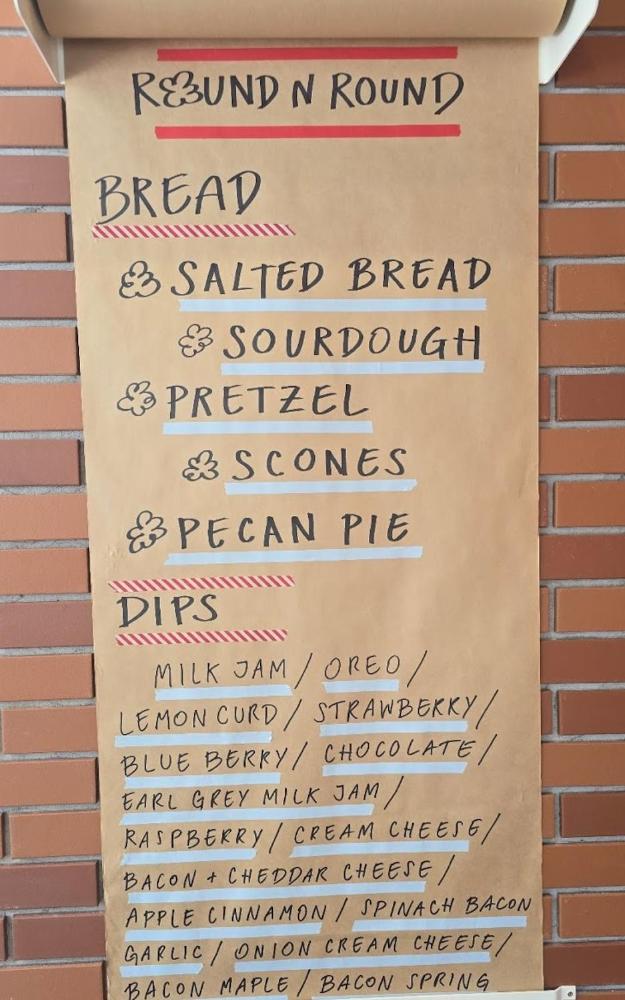 ROUND N ROUND
BREAD
SALTED BREAD
SOURDOUGH
PRETZEL
SCONES
PECAN PIE
DIPS
MILK JAM / OREO /
LEMON CURD / STRAWBERRY /
BLUE BERRY / CHOCOLATE /
EARL GREY MILK JAM /
RASPBERRY / CREAM CHEESE /
BACON + CHEDDAR CHEESE /
APPLE CINNAMON / SPINACH BACON
GARLIC / ONION CREAM CHEESE /
BACON MAPLE / BACON SPRING